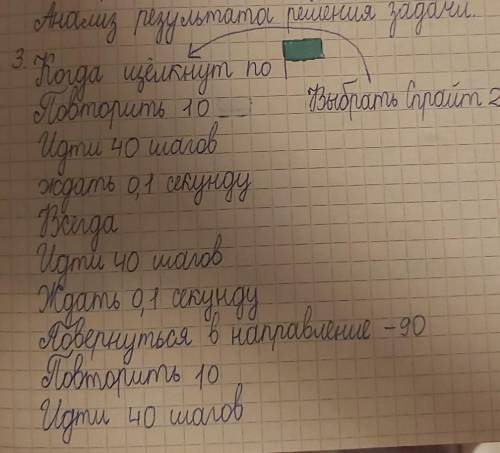 Анализ результата решения задачи.
3. Когда щёлкнут по
Повторить 10
Выбрать Спрайт 2
Идти 40 шагов
ждать 0,1 секунду
Всегда
Идти 40 шагов
Ждать 0,1 секунду
Повернуться в направление -90
Повторить 10
Идти 40 шагов